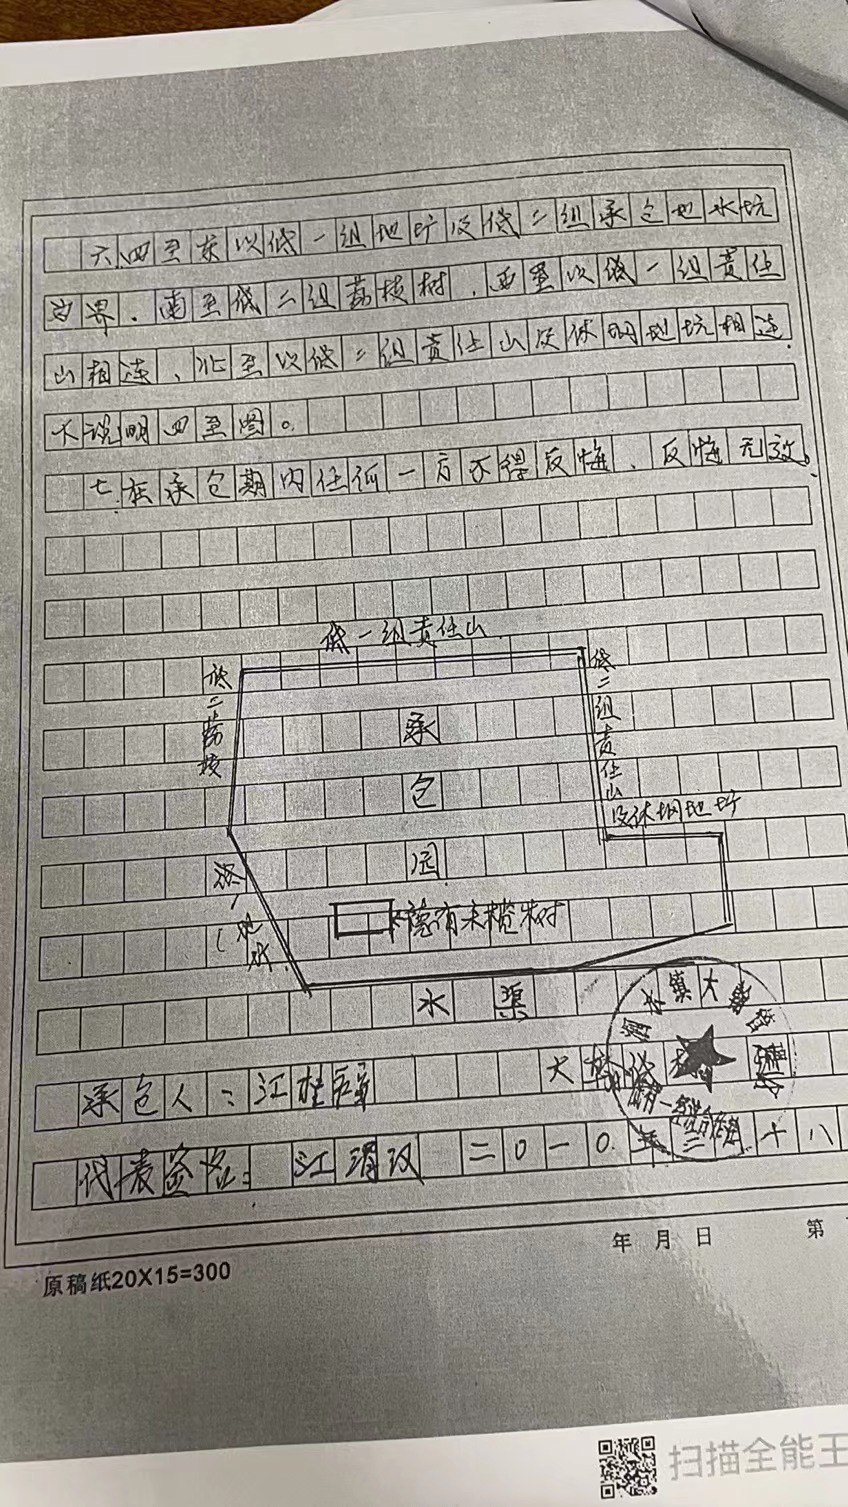 六.四至东以低一组地圹及低二组承包地水坑
为界.南至低二组荔枝树.西至以低一组责任
山相连、北至以低二组责任山及休纲地坑相连.
大说明四至图。
七.在承包期内任何一方不得反悔、反悔无效。
低一组责任山
低二荔枝
低二组责任山
及休纲地圹
承
包
园
榄树
水 渠
承包人:江桂
镇大
代表签名: 江渭汉 二0一0年三 十八
年 月 日 第
原稿纸20X15=300
扫描全能王